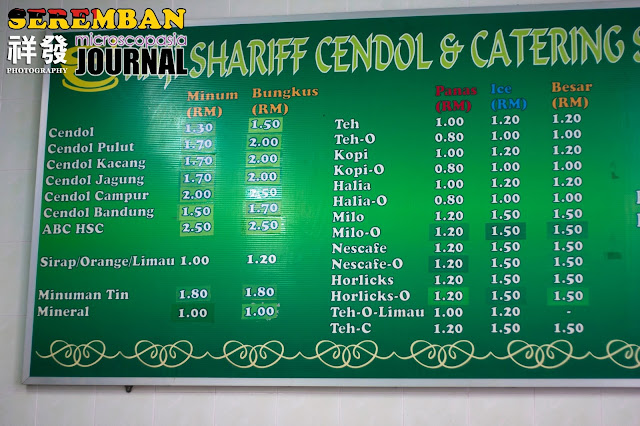 SEREMBAN
祥發 microscopasia
PHOTOGRAPHY JOURNAL
SHARIFF CENDOL & CATERING S
Minum (RM) Bungkus (RM)
Cendol 1.30 1.50
Cendol Pulut 1.70 2.00
Cendol Kacang 1.70 2.00
Cendol Jagung 1.70 2.00
Cendol Campur 2.00 2.50
Cendol Bandung 1.50 1.70
ABC HSC 2.50 2.50
Sirap/Orange/Limau 1.00 1.20
Minuman Tin 1.80 1.80
Mineral 1.00 1.00
Panas (RM) Ice (RM) Besar (RM)
Teh 1.00 1.20 1.20
Teh-O 0.80 1.00 1.00
Kopi 1.00 1.20 1.20
Kopi-O 0.80 1.00 1.00
Halia 1.00 1.20 1.20
Halia-O 0.80 1.00 1.00
Milo 1.20 1.50 1.50
Milo-O 1.20 1.50 1.50
Nescafe 1.20 1.50 1.50
Nescafe-O 1.20 1.50 1.50
Horlicks 1.20 1.50 1.50
Horlicks-O 1.20 1.50 1.50
Teh-O-Limau 1.00 1.20 -
Teh-C 1.20 1.50 1.50